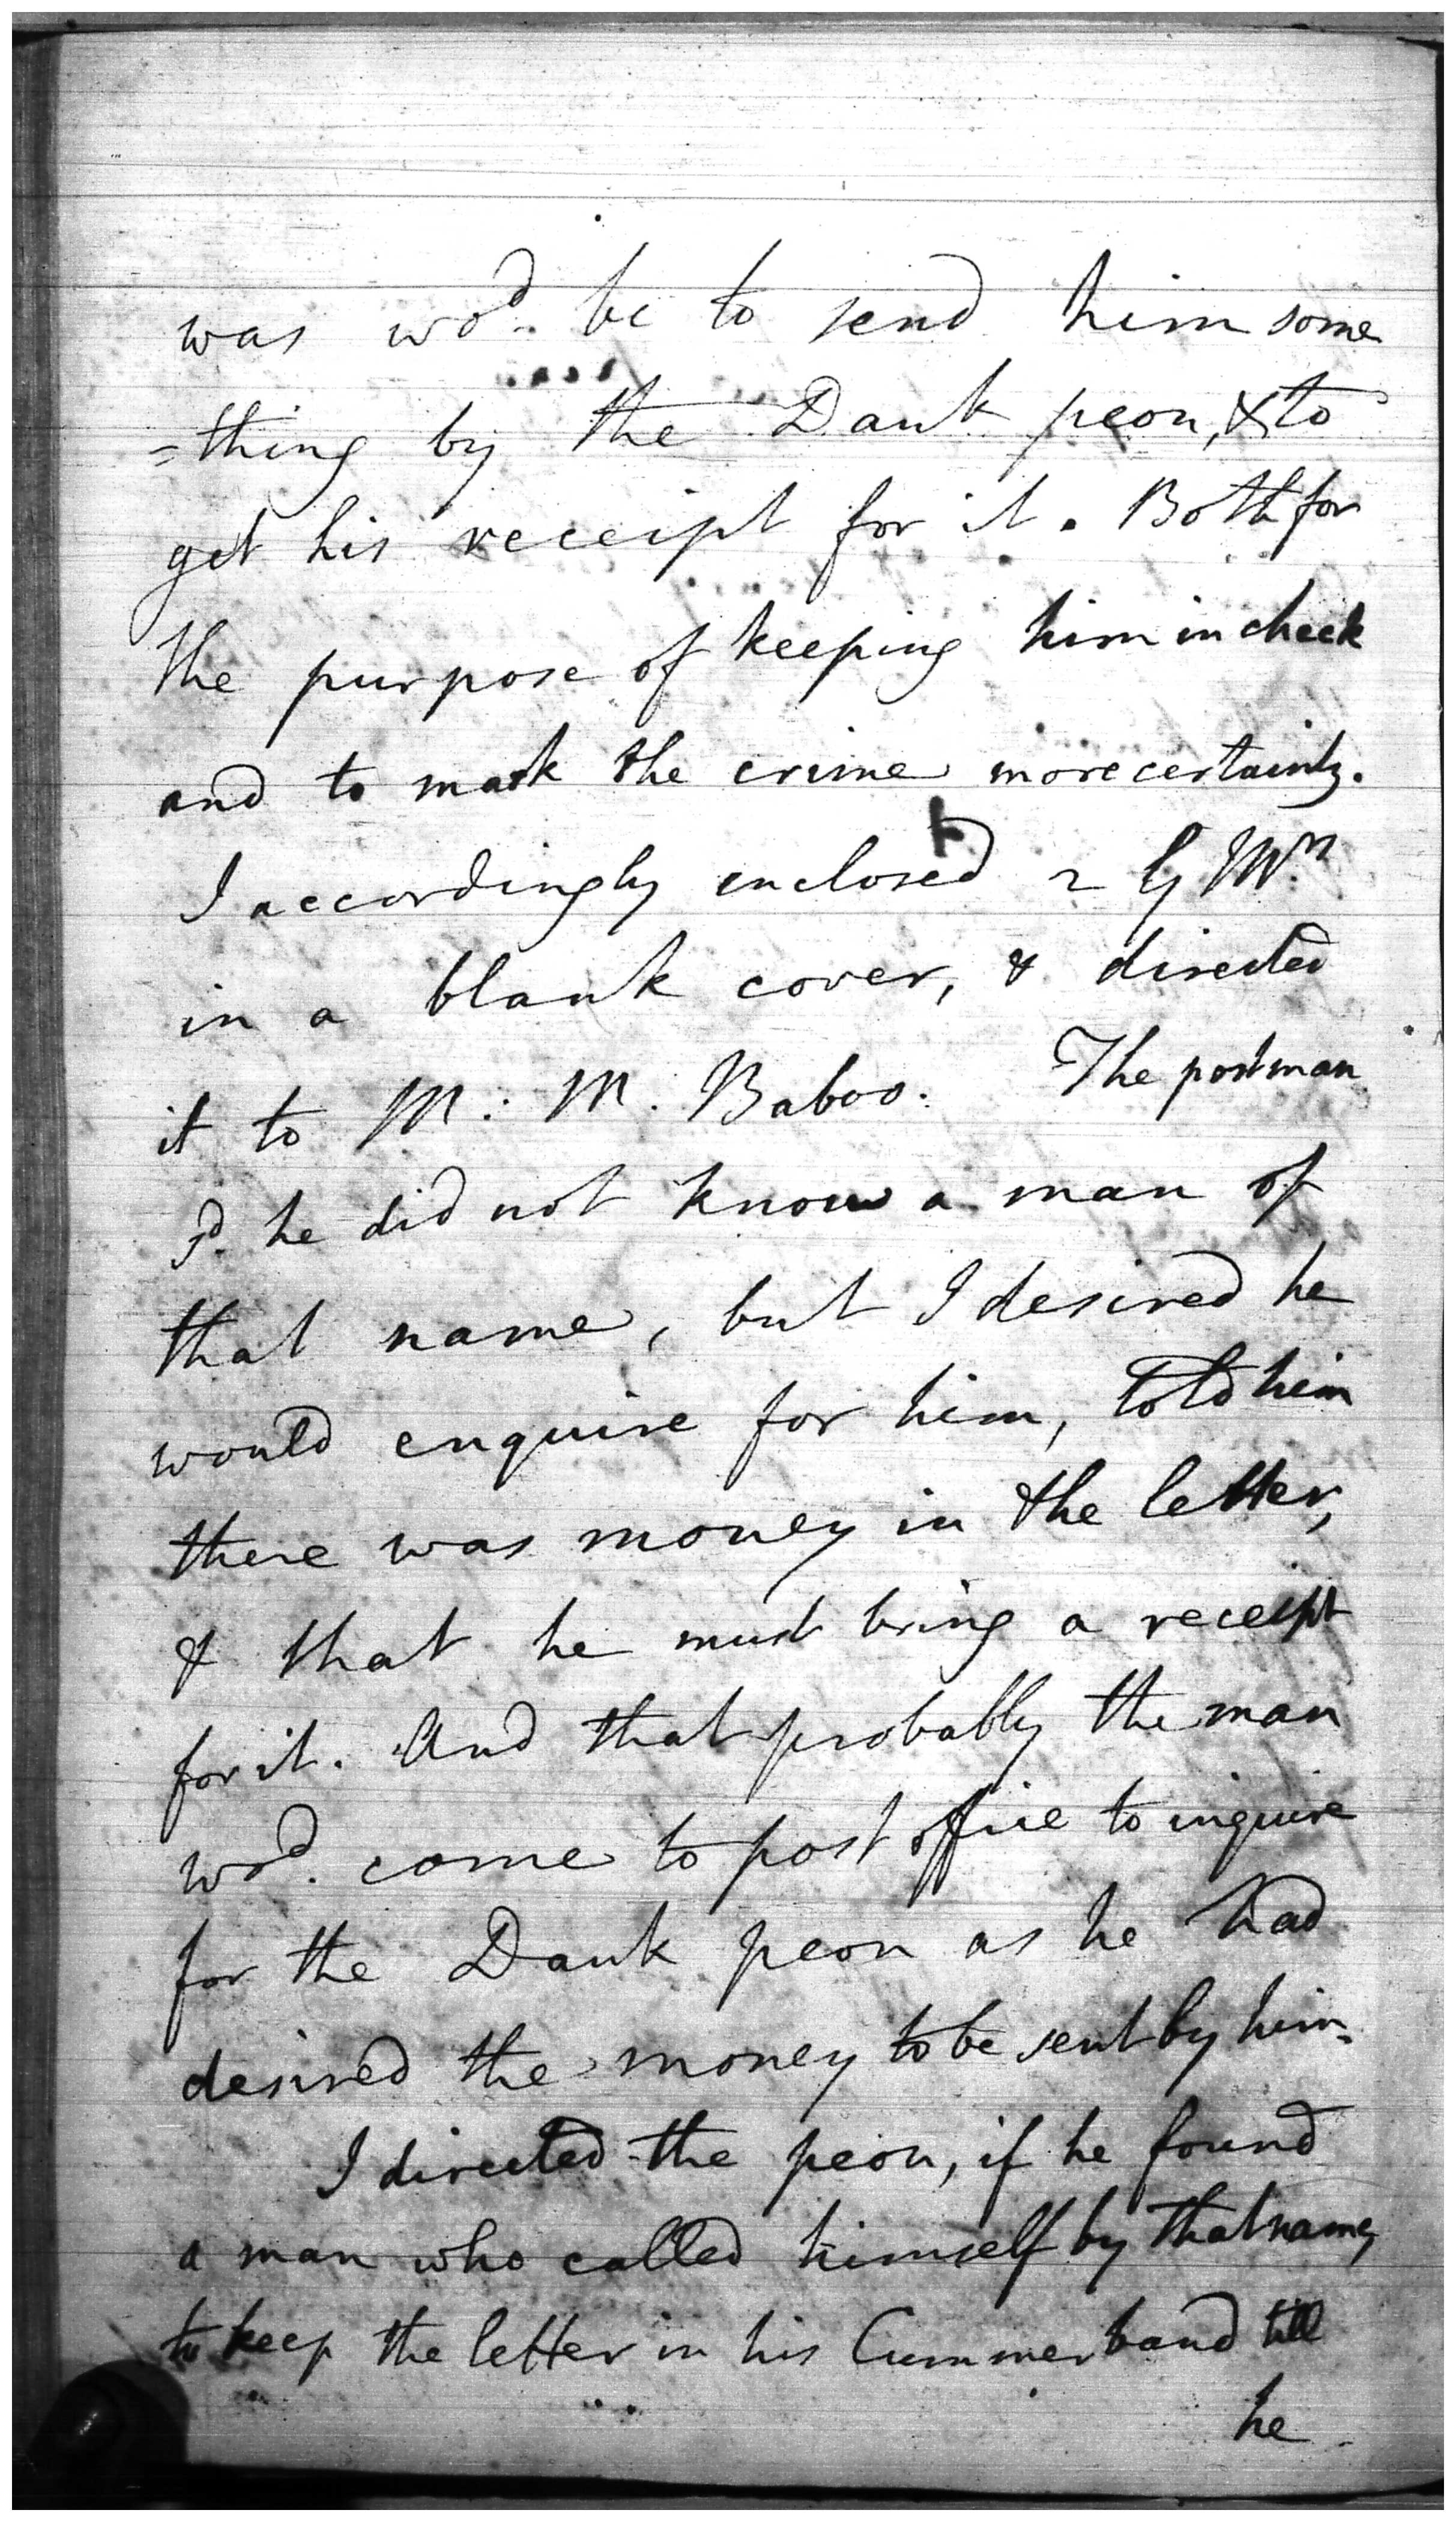 was wod. be to send him some
=thing by the Dauk peon, & to
get his receipt for it. Both for
the purpose of keeping him in check
and to mark the crime more certainly.
I accordingly enclosed 2 G Mrs
in a blank cover, & directed
it to M: M. Baboo. The postman
sd. he did not know a man of
that name, but I desired he
would enquire for him, told him
there was money in the letter,
& that he must bring a receipt
for it. And that probably the man
wod. come to post office to inquire
for the Dauk peon as he had
desired the money to be sent by him.
I directed the peon, if he found
a man who called himself by that name,
to keep the letter in his Cummerband till
he